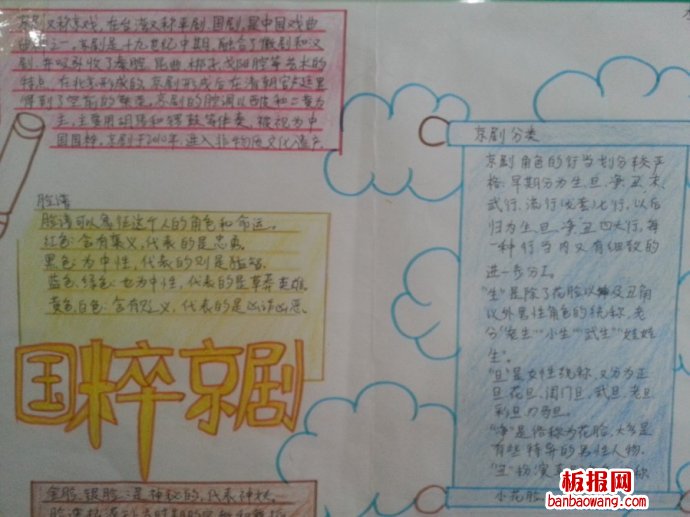 京剧又称京戏，在台湾又称平剧、国剧，是中国戏曲
之一，京剧是十九世纪中期，融合了徽剧和汉
剧，并吸收了秦腔、昆曲、梆子、弋阳腔等艺术的
特点，在北京形成的，京剧形成后在清朝宫廷里
得到了空前的繁荣，京剧的腔调以西皮和二黄为
主，主要用胡琴和锣鼓等伴奏，被视为中
国国粹，京剧于2010年，进入非物质文化遗产
脸谱
脸谱可以象征这个人的角色和命运。
红色：含有褒义，代表的是忠勇。
黑色：为中性，代表的则是猛智。
蓝色、绿色：也为中性，代表的是草莽英雄。
黄色，白色：含有贬义，代表的是凶诈凶恶。
国粹京剧
金脸、银脸：是神秘的，代表神妖。
京剧分类
京剧角色的行当划分较严
格，早期分为生、旦、净、丑、末、
武行、流行（龙套）七行，以后
归为生、旦、净、丑四大行，每
一种行当内又有细致的
进一步分工。
"生"是除了花脸以及丑角
以外男性角色的统称，老
分"老生""小生""武生""娃娃
生。
"旦"是女性统称，又分为正
旦、花旦、闺门旦、武旦、老旦
彩旦、刀马旦。
"净"是俗称为花脸，大多是
有些特异的男性人物。
"丑"扮演
小花脸
板报网
banbaowang.com